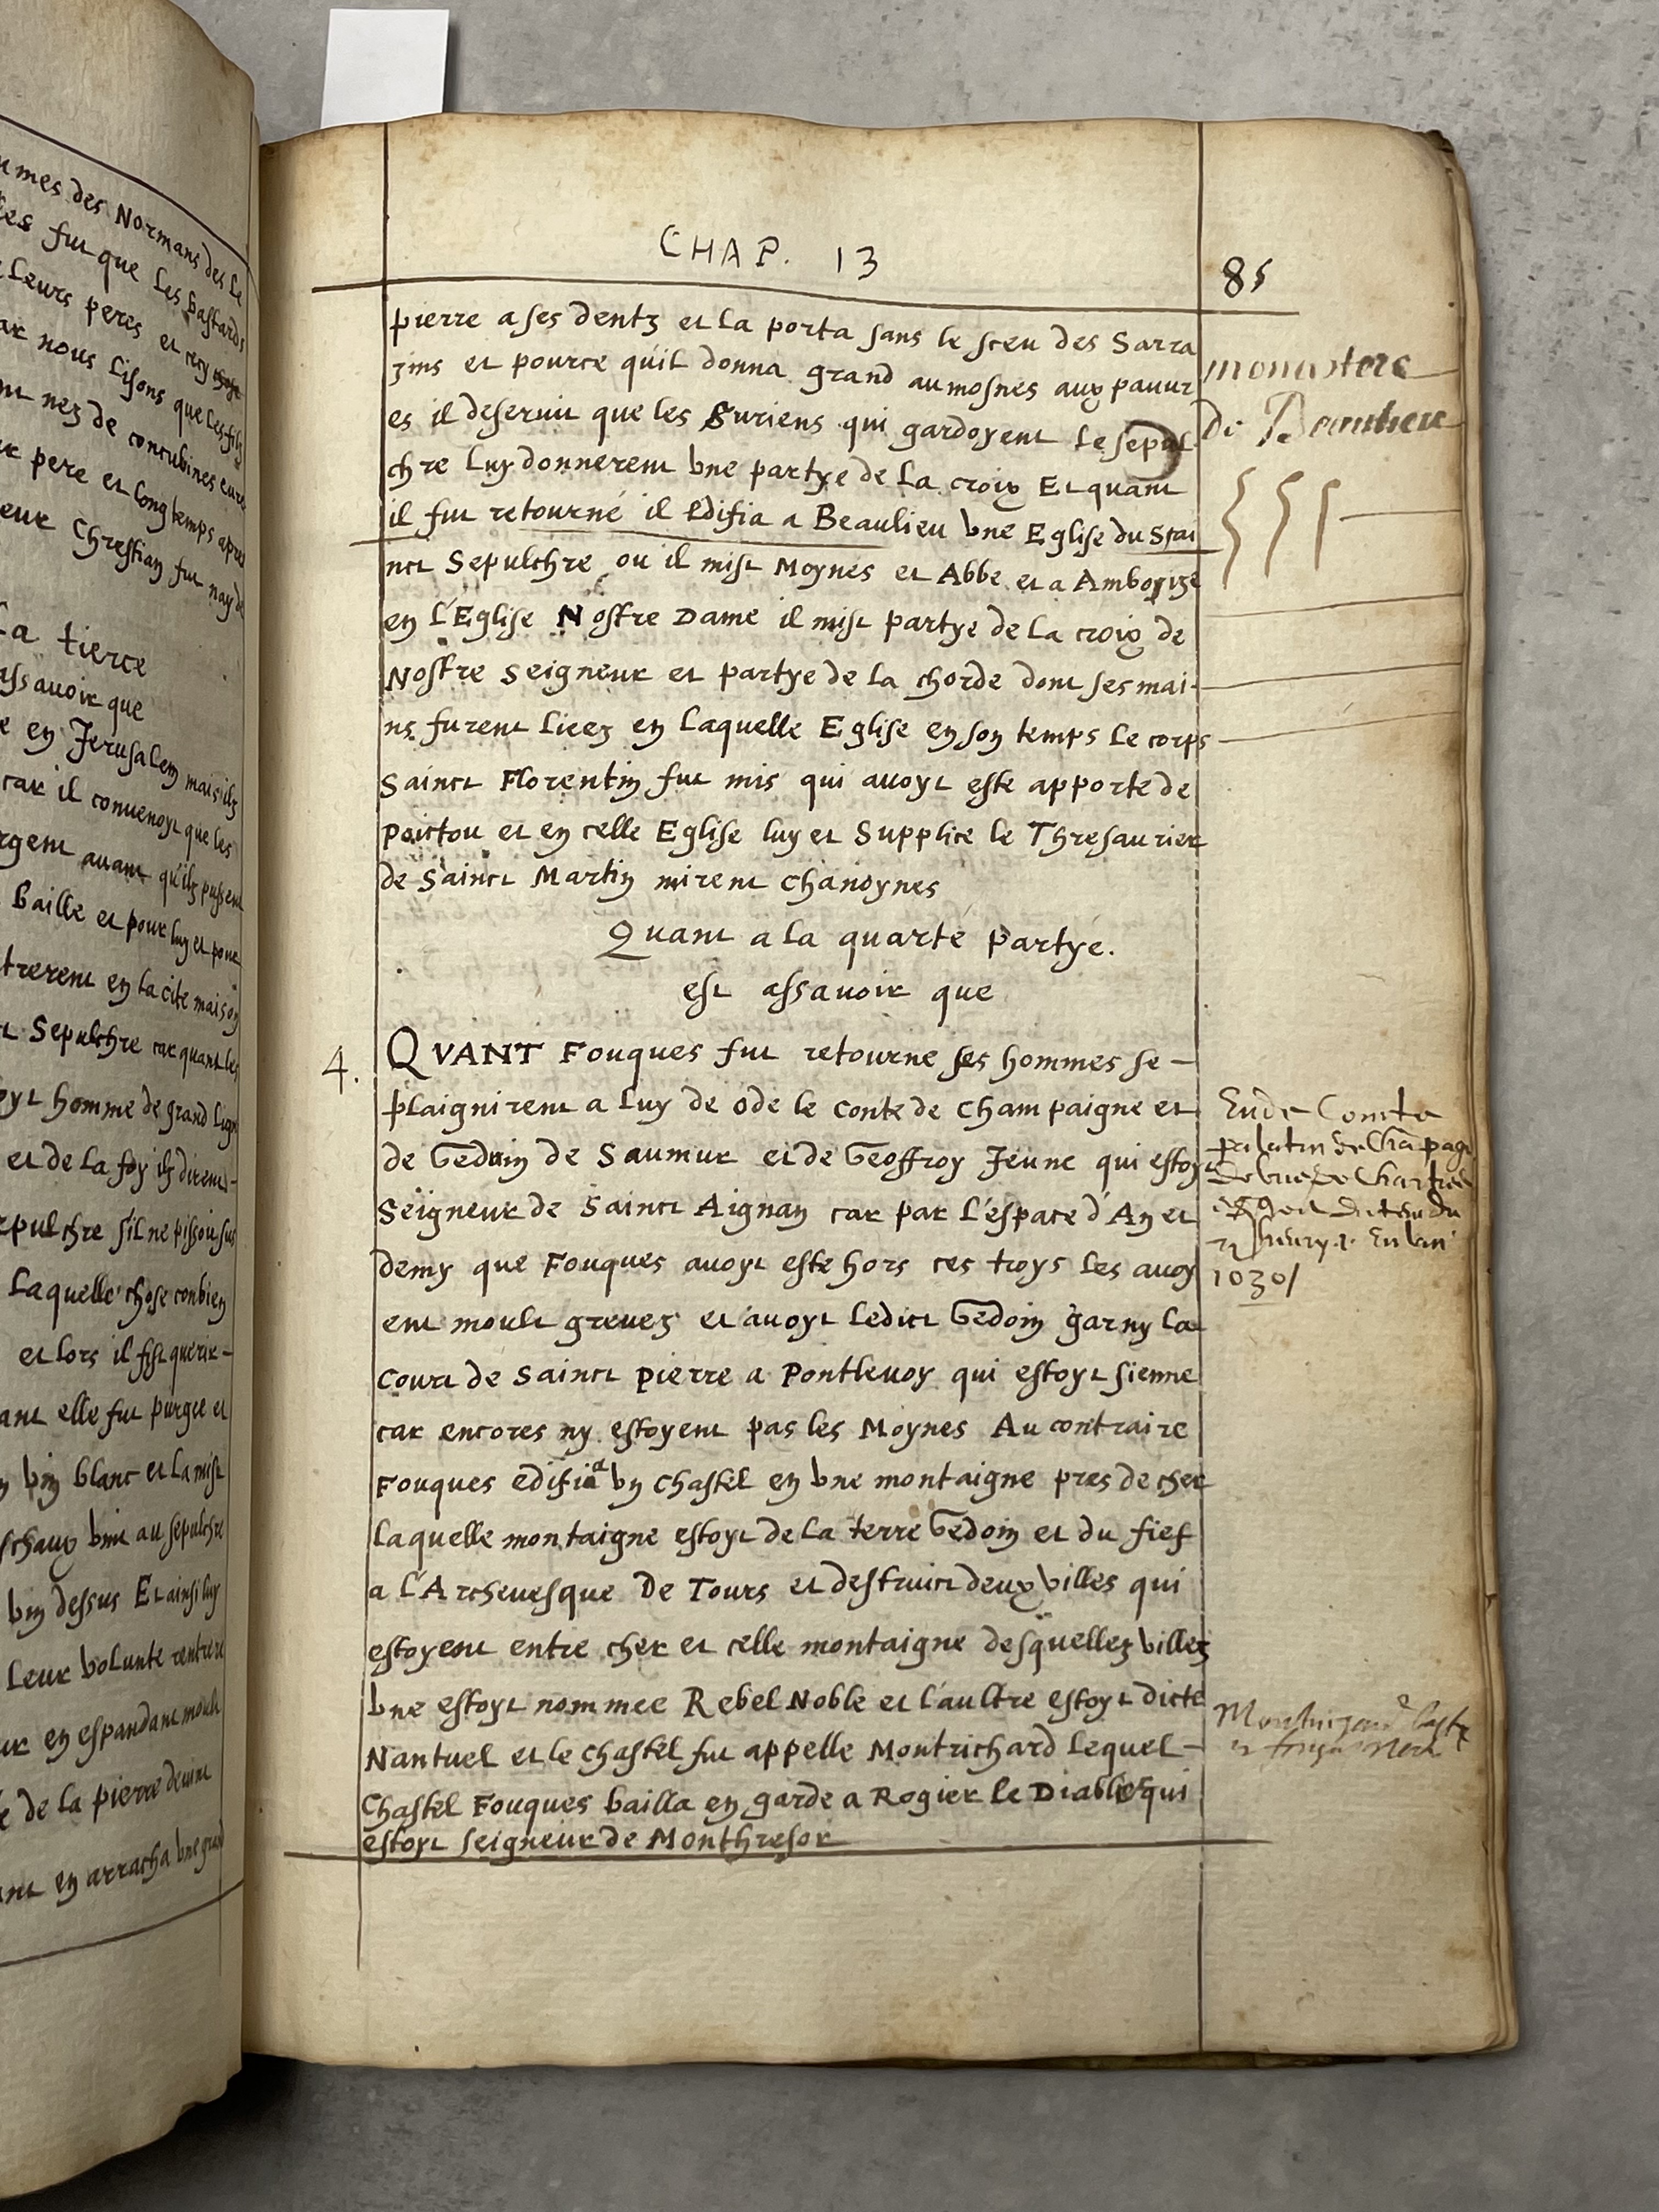 umes des Normans des le
es fut que les bastards
leurs peres et cecy
ar nous lisons que les filz
nt nez de concubines eure
r pere et long temps apres
eur Chrestian fut nay de
La tierce
assavoir que
e en Jerusalem mais ilz
car il convenoyt que les
rgent avant qu'ilz pussent
baille et pour luy et pour
trerent en la cite maison
ct Sepulchre car quant les
oyt homme de grand lign
et de la foy ilz dirent-
epulchre s'il ne pissoit sus
Laquelle chose conbien
et lors il fist querir-
ant elle fut purgee et
n vin blanc et la mist
schaux vint au sepulchre
vin dessus Et ainsi luy
leur volunte rentrere
ur en espandant moult
e de la pierre devint
ant en arracha une grand
CHAP. 13
85
pierre a ses dentz et la porta sans le sceu des Sarra
zins et pource qu'il donna grand aumosnes aux pauur
es il deseruit que les Suriens qui gardoyent le sepul-
chre luy donnerent vne partye de la croix Et quant
il fut retourné il edifia a Beaulieu vne Eglise du Sai
nct Sepulchre ou il mist Moynes et Abbe et a Amboyze
en l'Eglise Nostre Dame il mist partye de la croix de
Nostre Seigneur et partye de la chorde dont ses mai-
ns furent lieez en laquelle Eglise en son temps le corps
Sainct Florentin fut mis qui auoyt este apporte de
Poictou et en celle Eglise luy et Supplice le Thresaurier
de Sainct Martin mirent chanoynes
monastere
de Beaulieu
Quant a la quarte partye.
est assavoir que
4.
QVANT Fouques fut retourne ses hommes se-
plaignirent a luy de Ode le conte de Champaigne et
de Gedoin de Saumur et de Geoffroy Jeune qui estoyt
Seigneur de Sainct Aignan car par l'espace d'An et
demy que Fouques auoyt este hors ces troys les auoy
ent moult greuez et auoyt ledict Gedoin garny la
Court de Sainct Pierre a Pontleuoy qui estoyt sienne
car encores ny estoyent pas les Moynes Au contraire
Fouques edifia vn chastel en vne montaigne pres de cher
laquelle montaigne estoyt de la terre Gedoin et du fief
a l'Archeuesque De Tours et destruict deux villes qui
estoyent entre cher et celle montaigne desquellez villez
vne estoyt nommee Rebel Noble et l'aultre estoyt dicte
Nantuel et le chastel fut appelle Montrichard lequel-
Chastel Fouques bailla en garde a Rogier le Diable qui
estoyt seigneur de Monthresor
Eude Comte
palatin de Chãpagne
de Chartres
du
1030/